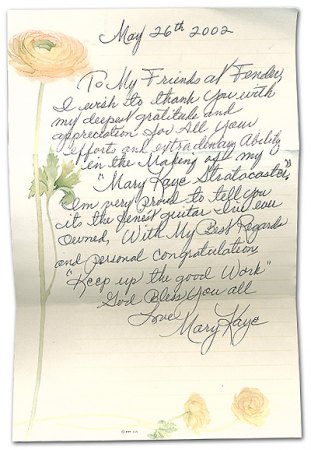 May 26th 2002
To My Friends at Fender,
I wish to thank you with
my deepest gratitude and
appreciation for All your
efforts and extradinary Ability
in the Making off my
"Mary Kaye Stratocaster"
I'm very proud to tell you
its the finest guitar I've ever
Owned, With My Best Regards
and personal Congratulations
"Keep up the good Work"
God Bless you all
Love
Mary Kaye